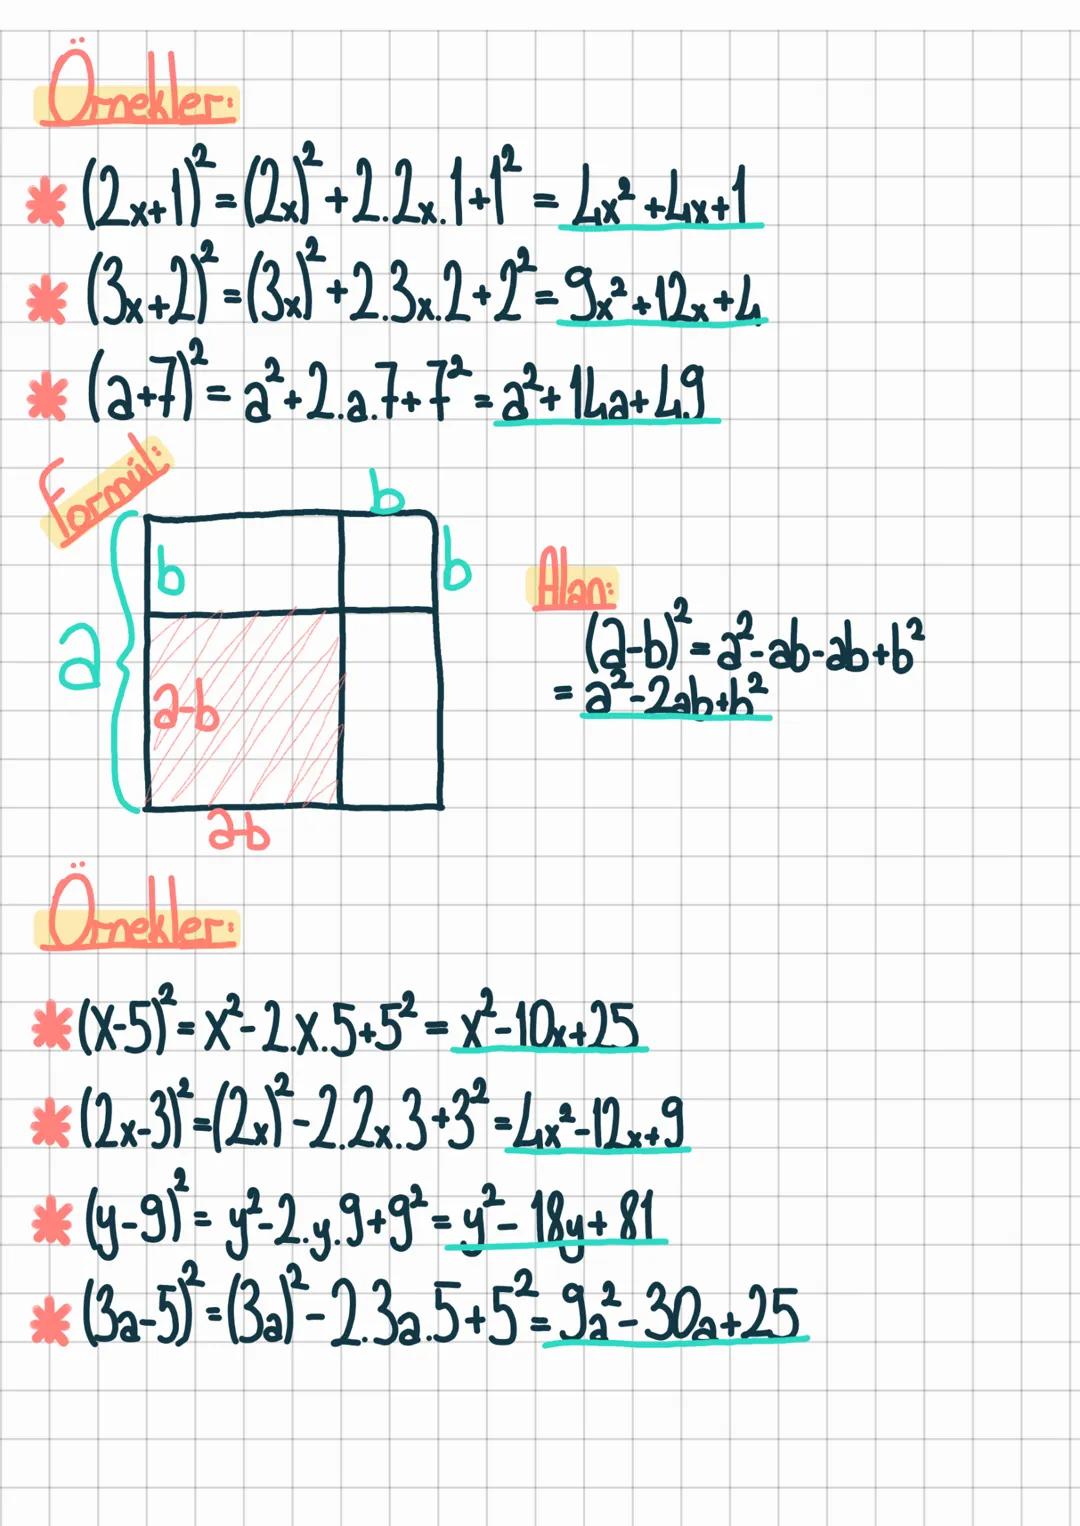 Örnekler:
* (2x+1)² = (2x)² + 2.2x.1+1² = 4x² +4x+1
* (3x+2)² = (3x)² + 2.3x.2+2² = 9x²+12x+4
* (a+7)² = a²+2.a.7+7² = a²+14a+49
Formül:
b
b
b
a
a-b
a-b
Alan:
(a-b)² = a²-ab-ab+b²
= a²-2ab+b²
Örnekler:
* (x-5)² = x²-2.x.5+5² = x²-10x+25
* (2x-3)² = (2x)² -2.2x.3+3² = 4x²-12x+9
* (y-9)² = y²-2.y.9+9² = y²-18y+81
* (3a-5)² = (3a)² -2.3a.5+5² = 9a²-30a+25